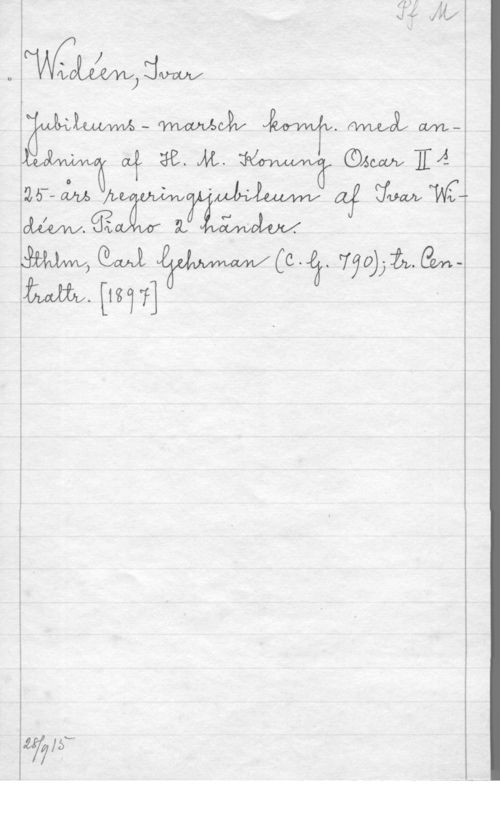 Pf M
Widéen, Ivar
Jubileums-marsch komp. med an-
ledning af H. M. Konung Oscar IIs
25-års regeringsjubileum af Ivar Wi-
déen. Piano 2 händer.
Sthlm, Carl Gehrman (C. G. 790); tr. Cen-
traltr. [1897]
28/9 15